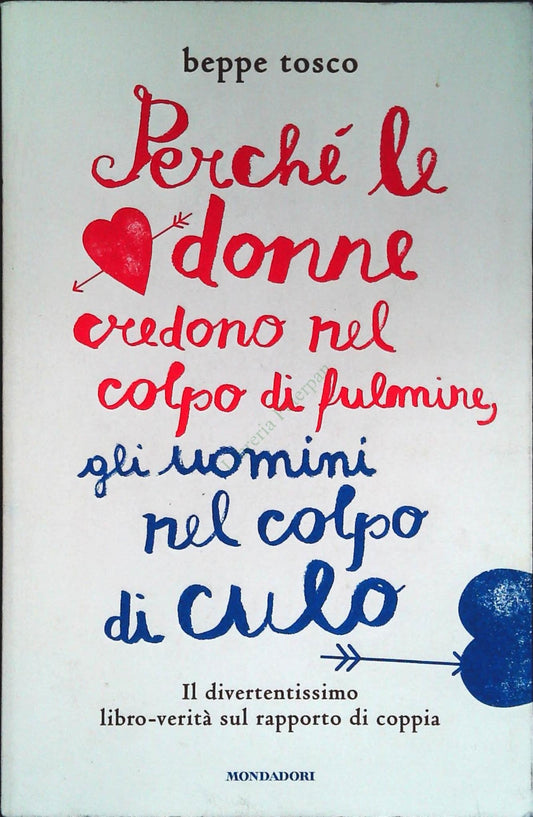 beppe tosco
Perché le
donne
credono nel
colpo di fulmine,
gli uomini
nel colpo
di culo
Il divertentissimo
libro-verità sul rapporto di coppia
MONDADORI